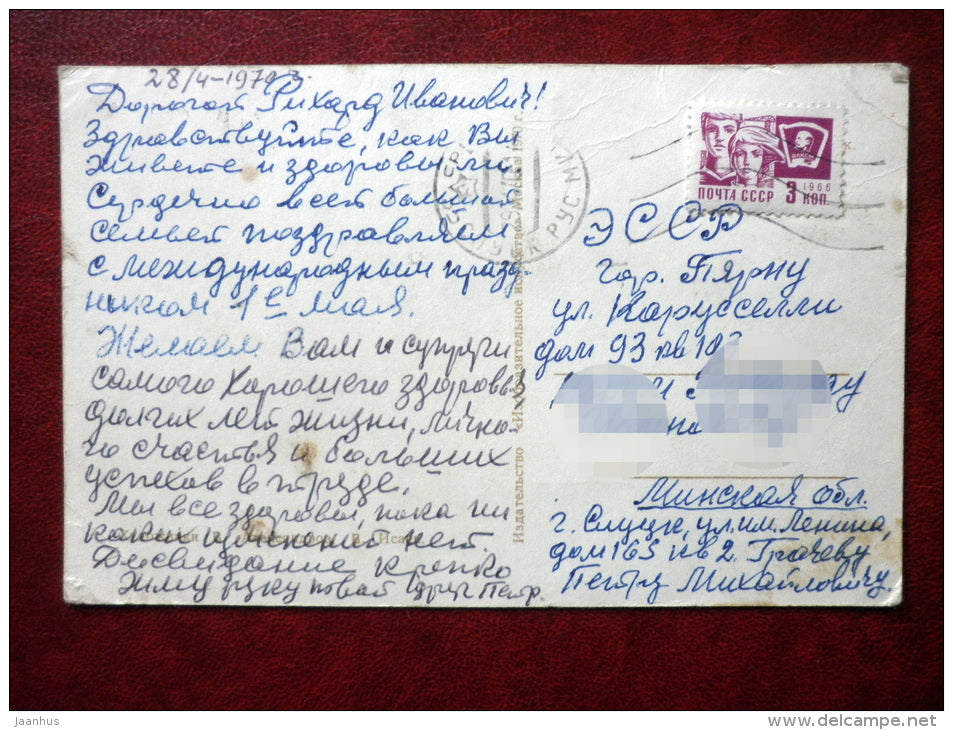 28/4-1970 г.
Дорогой Рихард Иванович!
Здравствуйте, как Вы
живете и здоровы ли
Сердечно всей большой
семьей поздравляем
с международным празд-
ником 1е мая.
Желаем Вам и супруги
самого хорошего здоровь
долгих лет жизни, лично-
го счастья и больших
успехов в труде.
Мы все здоровы, пока ни
каких изменений нет.
Досвидание Крепко
жму руку
друг Петр.
Издательство «Изобразительное искусство» Москва
ПОЧТА СССР 3 КОП.
1966
ВЛКСМ
ЭССР
гор. Пярну
ул. Карусселли
дом 93 кв
Минская обл.
г. Слуцк, ул. им. Ленина,
дом 163 кв 2. Грачеву
Петру Михайловичу.
Jaanhus
www.delcampe.net